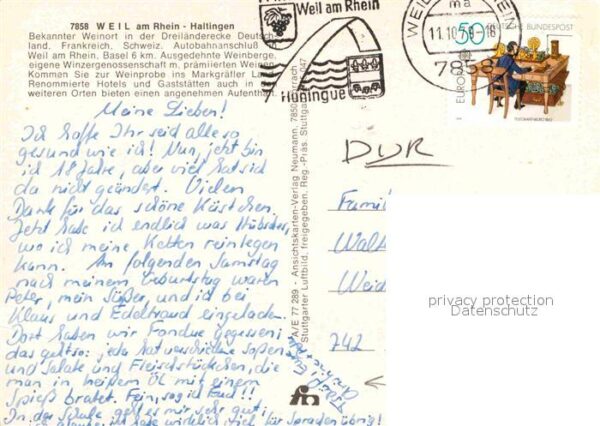 7858 WEIL am Rhein - Haltingen
Bekannter Weinort in der Dreiländerecke Deutsch-
land, Frankreich, Schweiz. Autobahnanschluß
Weil am Rhein, Basel 6 km. Ausgedehnte Weinberge,
eigene Winzergenossenschaft m. prämierten Weinen.
Kommen Sie zur Weinprobe ins Markgräfler
Renommierte Hotels und Gaststätten auch in
weiteren Orten bieten einen angenehmen Aufenthalt.
Meine Lieben!
Ich hoffe Ihr seid alle so
gesund wie ich! Nun, jetzt bin
ich 18 Jahre, aber viel hat sich
da nicht geändert. Vielen
Dank für das schöne Kästchen.
Jetzt habe ich endlich was Hübsches,
wo ich meine Ketten reinlegen
kann. Am folgenden Samstag
nach meinem Geburtstag waren
Peter, mein Süßer, und ich bei
Klaus und Edeltraud eingelad.
Dort haben wir Fondue gegessen;
das geht so: jeder hat verschiedene Soßen
und Salate und Fleischstückchen, die
man in heißem Öl mit einem
Spieß bratet. Fein, sag ich Euch!!
In der Schule geht es mir sehr gut;
ich glaube ich habe wirklich viel für Sprachen übrig!
A/E 77 289 - Ansichtskarten-Verlag Neumann, 7850 Lörrach
Stuttgarter Luftbild, freigegeben, Reg.-Präs. Stuttgart
Weil am Rhein
Huningue
WEIL
RHEIN
ma
11.10.79-16
7858
50
DEUTSCHE BUNDESPOST
EUROPA
DUR
Famil
Walt
Weid
742
privacy protection
Datenschutz